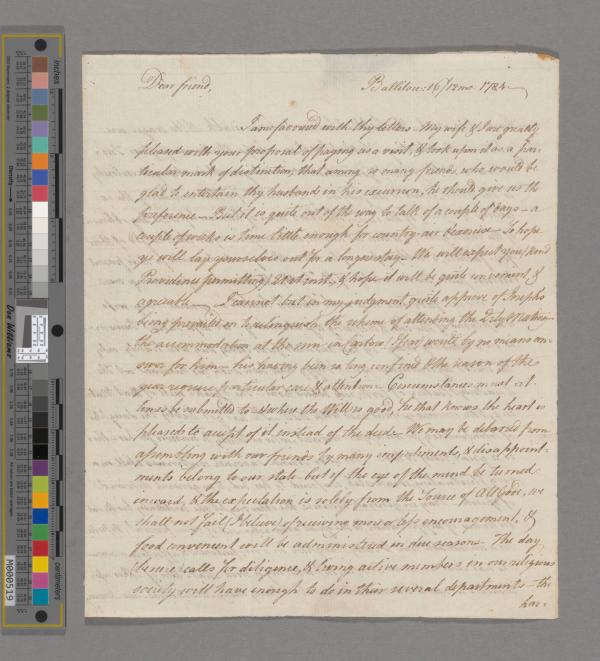 Dear friend, Ballitore: 16/12mo. 1784
I am favoured with thy letters. My wife & I are greatly
pleased with your proposal of paying us a visit, & look upon it as a par-
ticular mark of distinction, that among so many friends who would be
glad to entertain thy husband in his excursion, he should give us the
preference—But it is quite out of the way to talk of a couple of days—a
couple of weeks is time little enough for country-air business—So hope
ye will lay yourselves out for a longer stay. We will expect you (kind
Providence permitting) 21st inst., & hope it will be quite convenient &
agreeable— I cannot but in my judgment quite approve of Joseph's
being prevailed on to relinquish the scheme of attending the Qrly Meeting
the accommodation at the inn in Carlow I fear would by no means an-
swer for him—his having been so long confined & the season of the
year require particular care & attention—Circumstances must at
times be submitted to & where the Will is good, he that knows the heart is
pleased to accept of it instead of the deed. We may be debarred from
assembling with our friends by many impediments, & disappoint-
ments belong to our state—but if the eye of the mind be turned
inward, & the expectation is solely from the Source of All Good, we
shall not fail (I believe) of receiving more or less encouragement, &
food convenient will be administered in due season. The day
besure calls for diligence, & living active members in our religious
society will have enough to do in their several departments—the
har=
inches
centimeters
Don Williams
M000519